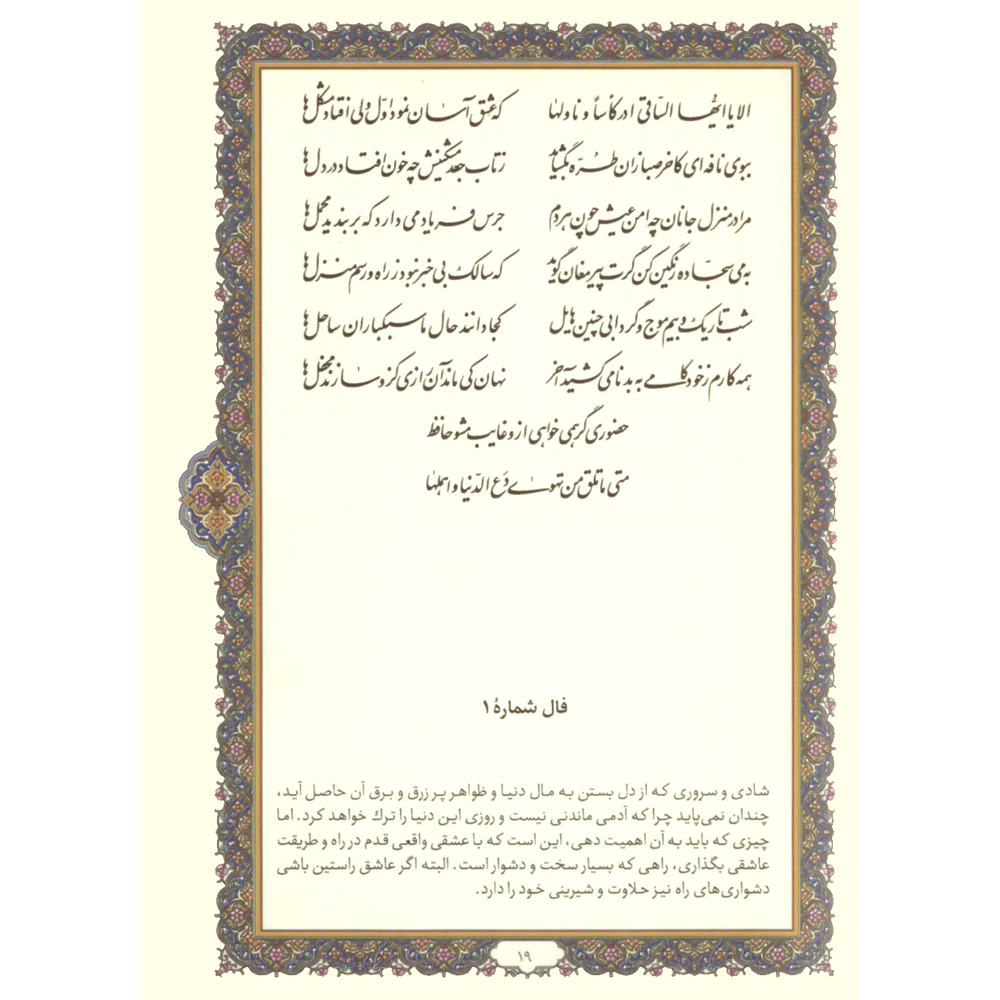 الا یا ایّها السّاقی ادر کأساً و ناولها که عشق آسان نمود اوّل ولی افتاد مشکل‌ها
ببوی نافه‌ای کاخر صبا زان طرّه بگشاید ز تاب جعد مشکینش چه خون افتاد در دل‌ها
مرا در منزل جانان چه امن عیش چون هر دم جرس فریاد می دارد که بربندید محمل‌ها
به می سجّاده رنگین کن گرت پیر مغان گوید که سالک بی خبر نبود ز راه و رسم منزل‌ها
شب تاریک و بیم موج و گردابی چنین هایل کجا دانند حال ما سبکباران ساحل‌ها
همه کارم ز خود کامی به بدنامی کشید آخر نهان کی ماند آن رازی کز و سازند محفل‌ها
حضوری گر همی خواهی از و غایب مشو حافظ
متی ما تلق من تهوی دَع الدّنیا و اهملها
فال شمارهٔ ۱
شادی و سروری که از دل بستن به مال دنیا و ظواهر پر زرق و برق آن حاصل آید،
چندان نمی‌پاید چرا که آدمی ماندنی نیست و روزی این دنیا را ترك خواهد کرد. اما
چیزی که باید به آن اهمیت دهی، این است که با عشقی واقعی قدم در راه و طریقت
عاشقی بگذاری، راهی که بسیار سخت و دشوار است. البته اگر عاشق راستین باشی
دشواری‌های راه نیز حلاوت و شیرینی خود را دارد.
۱۹